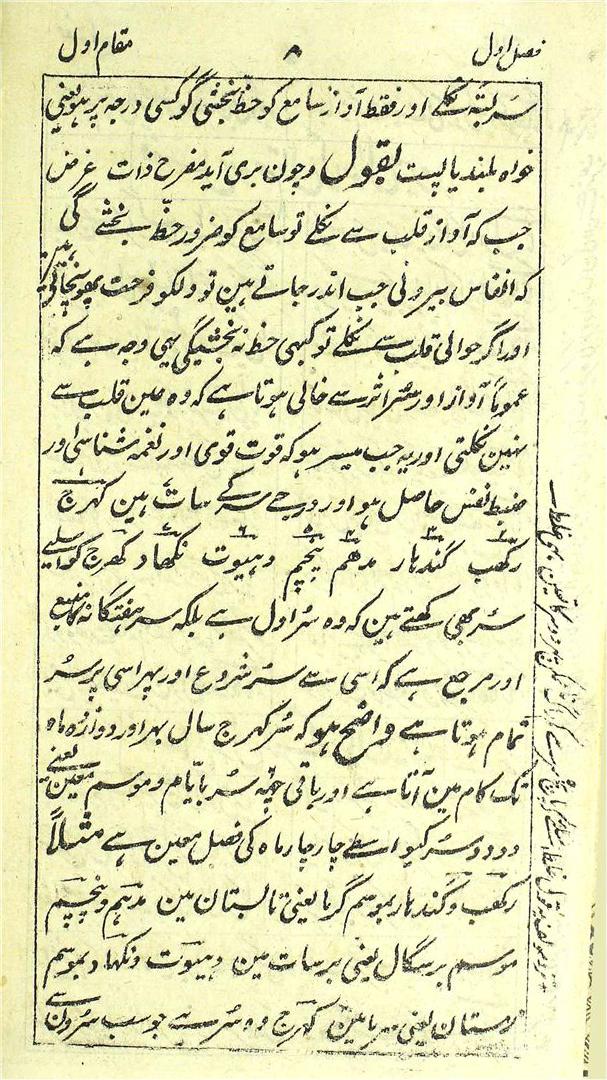 فصل اول ۸ مقام اول
سربستہ نکلے اور فقط آواز سامع کو حظ بخشی گو کسی درجہ پر ہو یعنی
خواہ بلند یا پست بقول وچون بری آید مفرح ذات غرض
جب کہ آواز قلب سے نکلے تو سامع کو ضرور حظ بخشے گی
کہ انفاس بیرونی جب اندر جاتے ہین تو دلکو فرحت پھونچاتی ہین
اور اگر حوالی قلب سے نکلے تو کبھی حظ نہ بخشیگی یہی وجہ ہے کہ
عموماً آواز اور سُر اثر سے خالی ہوتا ہے کہ وہ عین قلب سے
نہین نکلتی اور یہ جب میسر ہو کہ قوت قوی اور نغمہ شناسی اور
ضبط نفس حاصل ہو اور درجے سُر کے سات ہین کہرج
رکھب گندہار مدھم پنچم دہیوت نکھاد کھرج کو اسلیے
سُر بھی کہتے ہین کہ وہ سُر اول ہے بلکہ سر ہفتگانہ کا منبع
اور مرجع ہے کہ اسی سے سُر شروع اور پہر اسی پر سُر
تمام ہوتا ہے واضح ہو کہ سُر کہرج سال بہر اور دوازدہ ماہ
تک کام مین آتا ہے اور باقی چھہ سُر بایّام و موسم معین یعنے
دو دو سُر کیواسطے چار چار ماہ کی فصل معین ہے مثلاً
رکھب و گندہار بموسم گرما یعنی تابستان مین مدہم و پنچم
موسم برسگال یعنی برسات مین دہیوت و نکہاد بموسم
زمستان یعنی سرما مین کہرج وہ سُر ہے جو سب سُرون سے